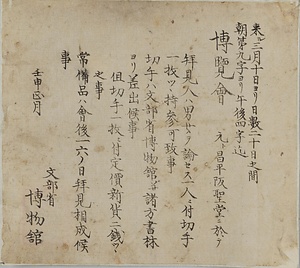 来ル三月十日ヨリ日数二十日之間
朝第九字ヨリ午後四字迄
博覧會 元ト昌平阪聖堂ニ於テ
拝見人ハ男女ヲ論セス一人ニ付切手
一枚ツヽ持参可致事
切手ハ文部省博物館諸方書林
ヨリ差出候事
但切手一枚ニ付定價新貨二銭ツヽ
之事
常備品ハ會後一六ノ日拝見相成候
事
壬申正月
文部省
博物館